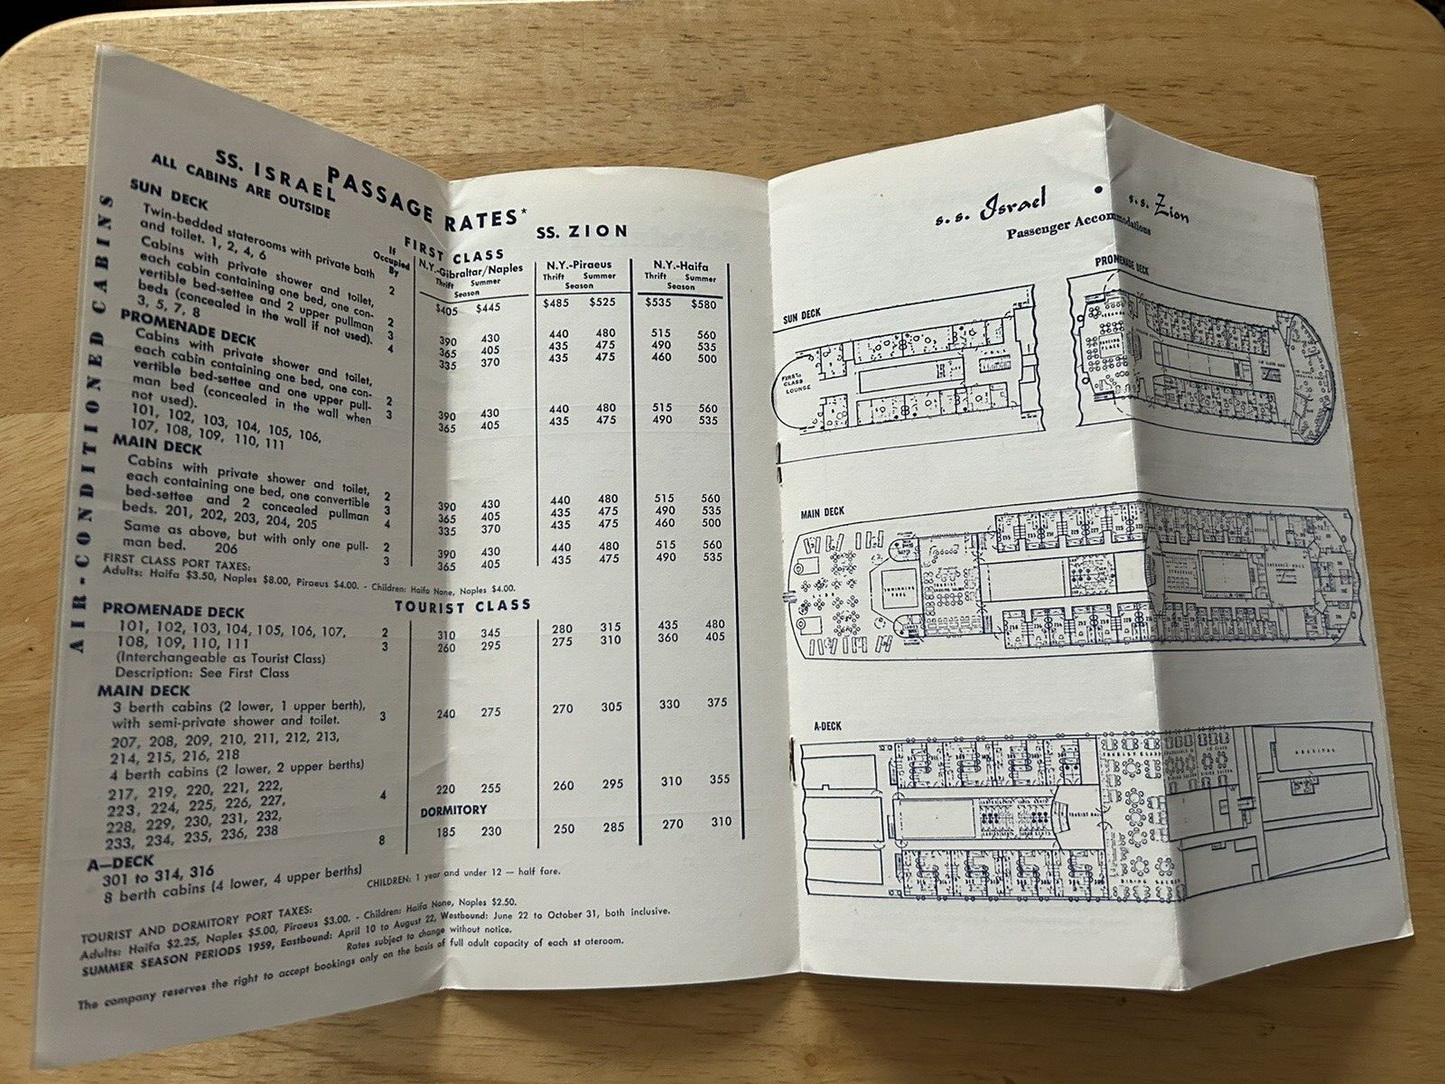 PASSAGE RATES*
SS. ISRAEL SS. ZION
ALL CABINS ARE OUTSIDE
AIR-CONDITIONED CABINS
FIRST CLASS
If Occupied By
N.Y.-Gibraltar/Naples N.Y.-Piraeus N.Y.-Haifa
Thrift Summer Thrift Summer Thrift Summer
Season Season Season
SUN DECK
Twin-bedded staterooms with private bath
and toilet. 1, 2, 4, 6 2 $405 $445 $485 $525 $535 $580
Cabins with private shower and toilet,
each cabin containing one bed, one con-
vertible bed-settee and 2 upper pullman 2 390 430 440 480 515 560
beds (concealed in the wall if not used). 3 365 405 435 475 490 535
3, 5, 7, 8 4 335 370 435 475 460 500
PROMENADE DECK
Cabins with private shower and toilet,
each cabin containing one bed, one con-
vertible bed-settee and one upper pull-
man bed (concealed in the wall when 2 390 430 440 480 515 560
not used). 3 365 405 435 475 490 535
101, 102, 103, 104, 105, 106,
107, 108, 109, 110, 111
MAIN DECK
Cabins with private shower and toilet,
each containing one bed, one convertible 2 390 430 440 480 515 560
bed-settee and 2 concealed pullman 3 365 405 435 475 490 535
beds. 201, 202, 203, 204, 205 4 335 370 435 475 460 500
Same as above, but with only one pull- 2 390 430 440 480 515 560
man bed. 206 3 365 405 435 475 490 535
FIRST CLASS PORT TAXES:
Adults: Haifa $3.50, Naples $8.00, Piraeus $4.00. - Children: Haifa None, Naples $4.00.
TOURIST CLASS
PROMENADE DECK
101, 102, 103, 104, 105, 106, 107, 2 310 345 280 315 435 480
108, 109, 110, 111 3 260 295 275 310 360 405
(Interchangeable as Tourist Class)
Description: See First Class
MAIN DECK
3 berth cabins (2 lower, 1 upper berth),
with semi-private shower and toilet. 3 240 275 270 305 330 375
207, 208, 209, 210, 211, 212, 213,
214, 215, 216, 218
4 berth cabins (2 lower, 2 upper berths)
217, 219, 220, 221, 222, 4 220 255 260 295 310 355
223, 224, 225, 226, 227,
228, 229, 230, 231, 232,
233, 234, 235, 236, 238
DORMITORY
A—DECK
301 to 314, 316 8 185 230 250 285 270 310
8 berth cabins (4 lower, 4 upper berths)
CHILDREN: 1 year and under 12 — half fare.
TOURIST AND DORMITORY PORT TAXES:
Adults: Haifa $2.25, Naples $5.00, Piraeus $3.00. - Children: Haifa None, Naples $2.50.
SUMMER SEASON PERIODS 1959, Eastbound: April 10 to August 22, Westbound: June 22 to October 31, both inclusive.
Rates subject to change without notice.
The company reserves the right to accept bookings only on the basis of full adult capacity of each st ateroom.
s. s. Israel • s. s. Zion
Passenger Accommodations
SUN DECK
FIRST CLASS LOUNGE
PROMENADE DECK
MAIN DECK
SWIMMING POOL
ENTRANCE HALL
A-DECK
TOURIST HALL
HOSPITAL